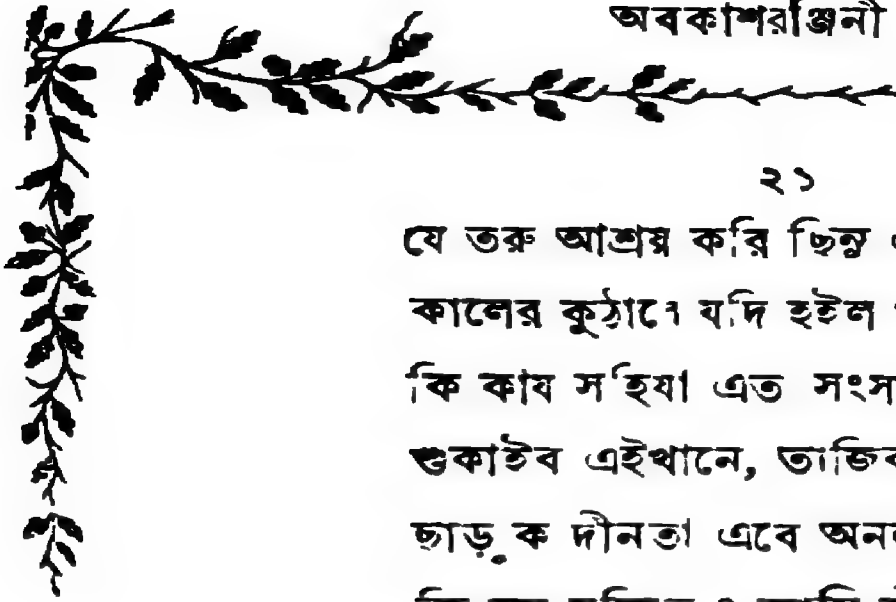 অবকাশরঞ্জিনী
২১
যে তরু আশ্রয় করি ছিনু
কালের কুঠারে যদি হইল
কি কায সহিয়া এত সংস
শুকাইব এইখানে, ত্যজিব
ছাড়ুক দীনতা এবে অন